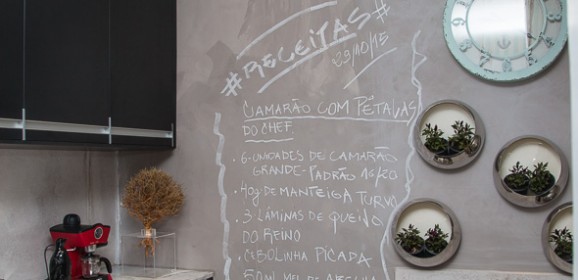 #RECEITAS#
29/10/15
CAMARÃO COM PÉTALAS
DO CHEF
• 6-UNIDADES DE CAMARÃO
GRANDE-PADRÃO 16/20
• 40g DE MANTEIGA TURVO
• 3 LÂMINAS DE QUEIJO
DO REINO
• CEBOLINHA PICADA
50ML MEL DE